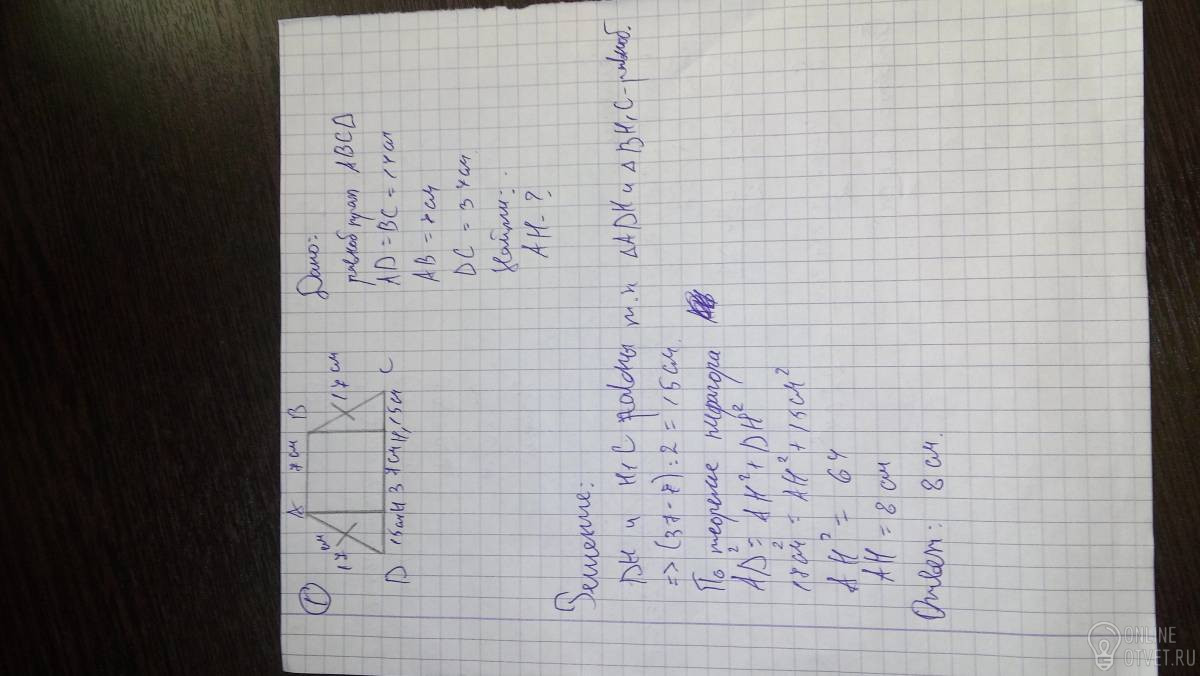 1
A 7 см B
17 см
17 см
D 15см H 37см H₁ 15см C
Дано:
равноб трап ABCD
AD = BC = 17см
AB = 7см
DC = 37см
Найти:
AH - ?
Решение:
DH и H₁C равны т.к ΔADH и ΔBH₁C - равноб.
=> (37-7):2 = 15см.
По теореме пифагора
AD² = AH² + DH²
17см² = AH² + 15см²
AH² = 64
AH = 8 см
Ответ: 8 см.
ONLINE
OTVET.RU